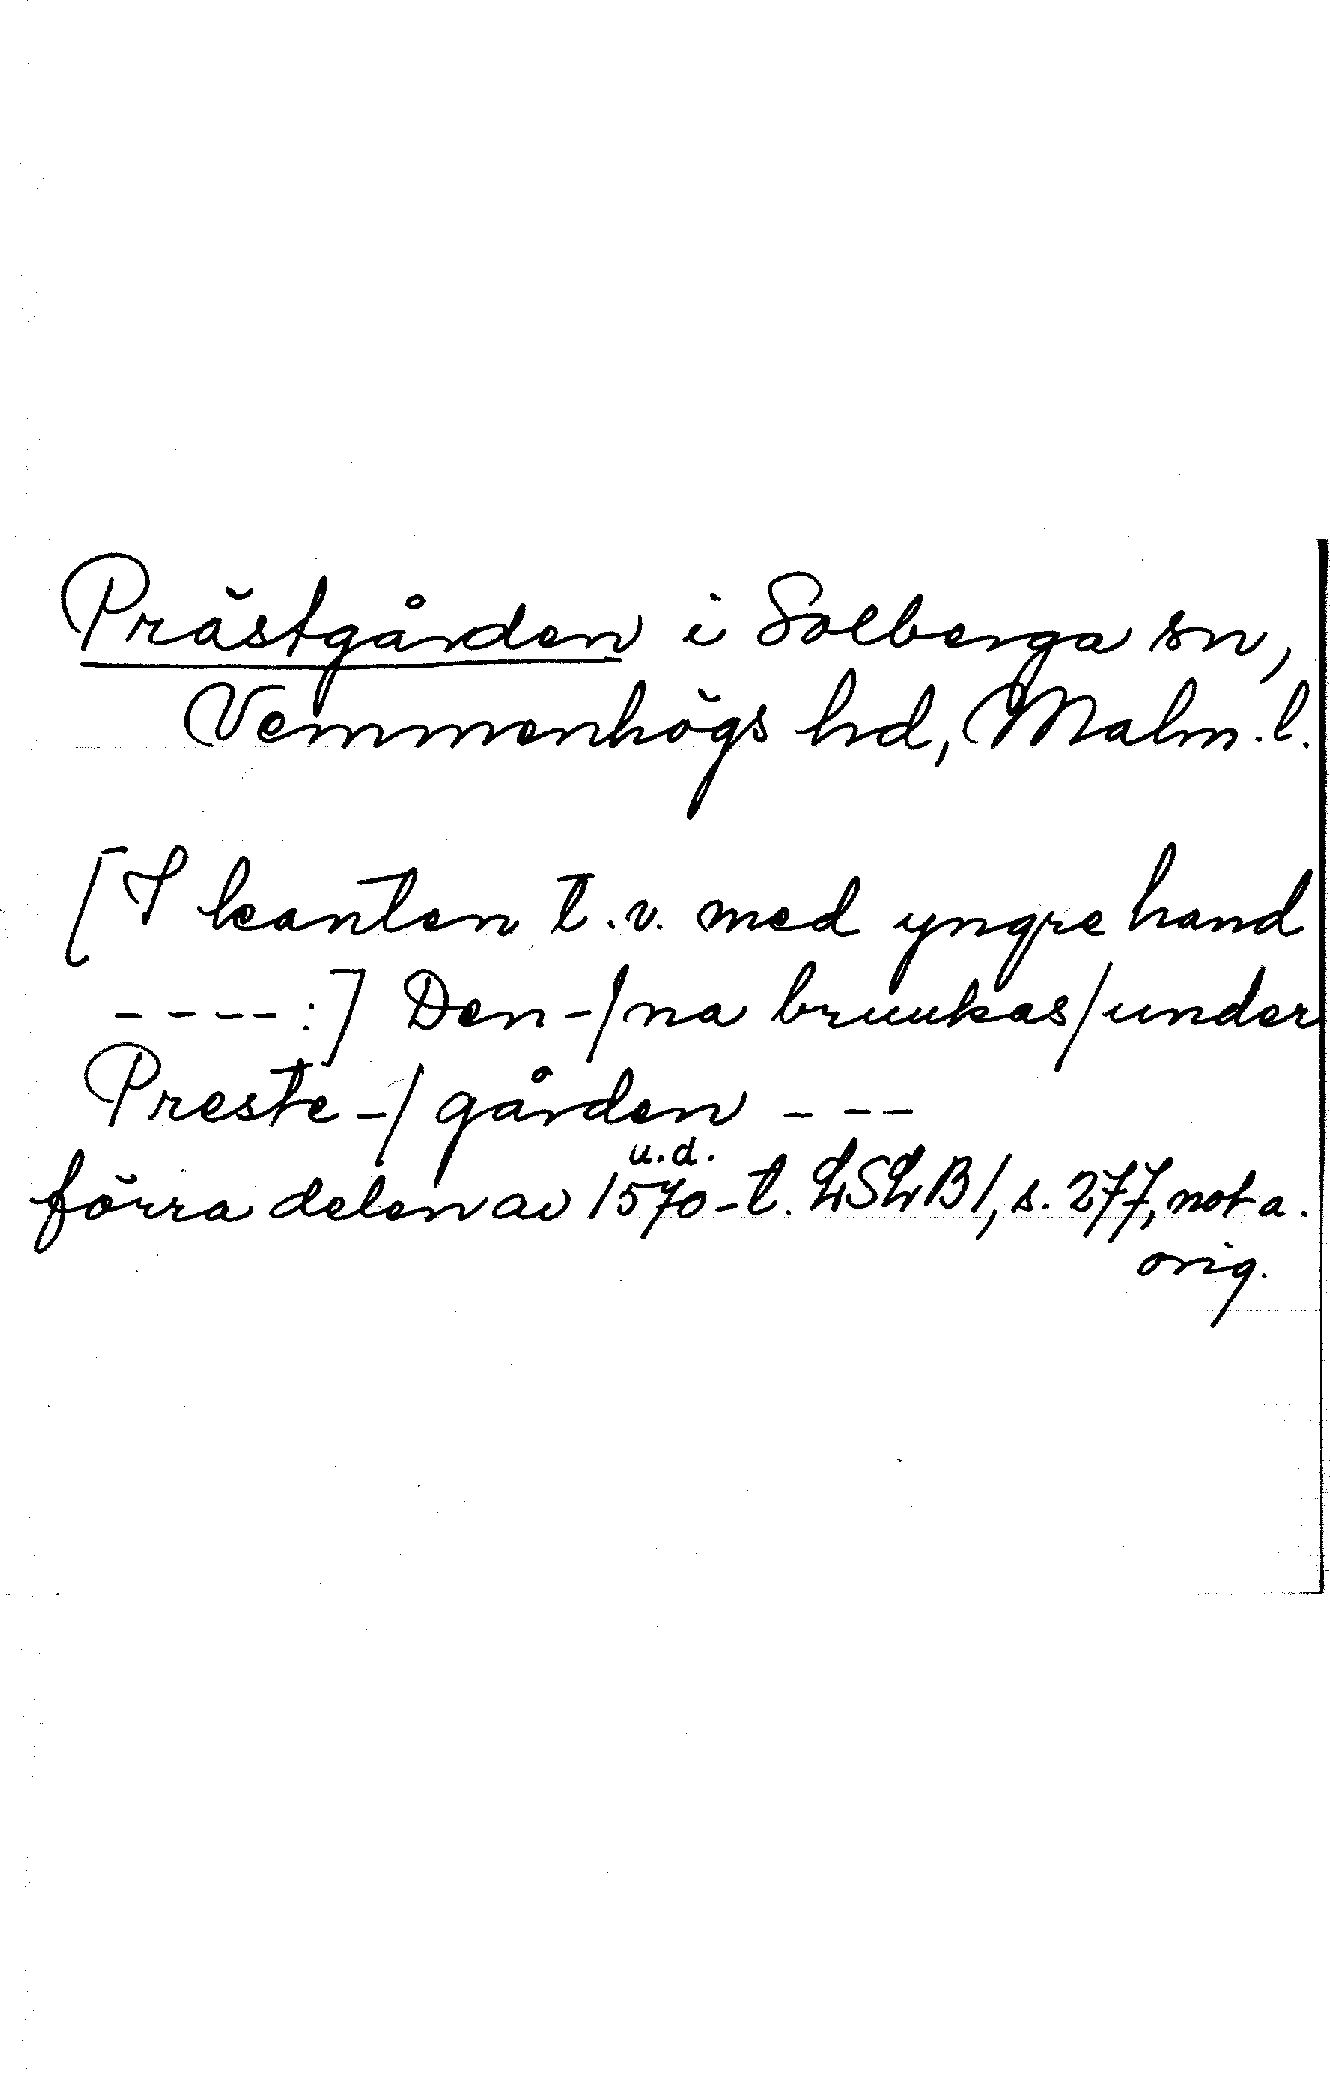 Prästgården i Solberga sn,
Vemmenhögs hd, Malm. l.
[I kanten t.v. med yngre hand
----:] Den-/na bruukas/under
Preste-/gården ---
u.d.
förra delen av 1570-t. LSLB1, s. 277, not a.
orig.